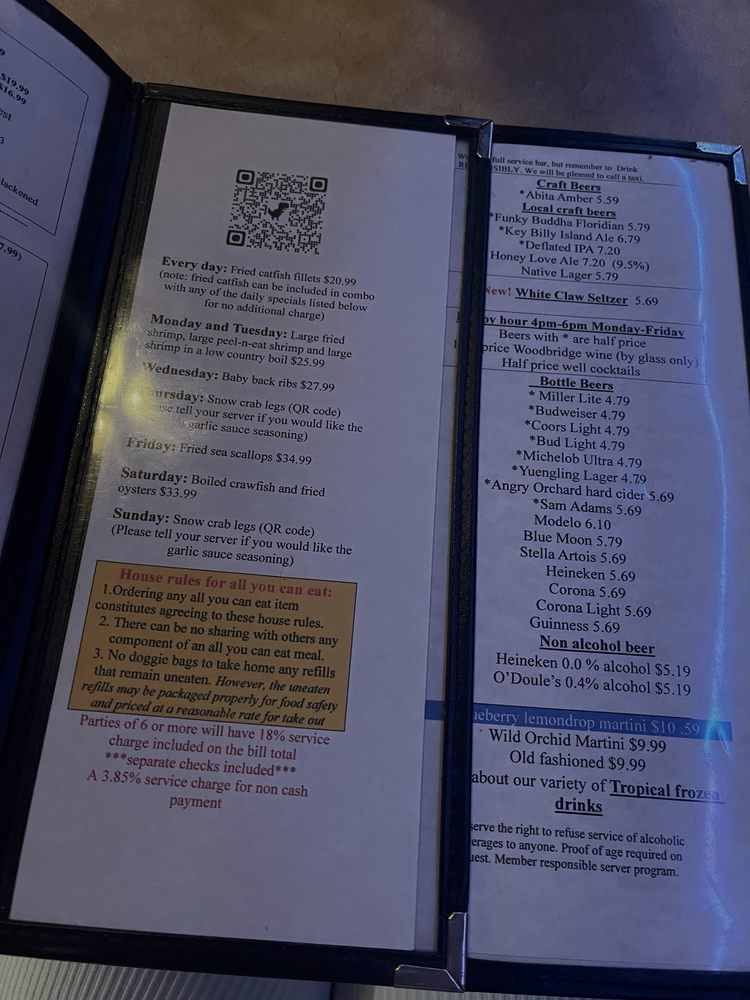 $19.99
$16.99
est
3
blackened
7.99)
Every day: Fried catfish fillets $20.99
(note: fried catfish can be included in combo
with any of the daily specials listed below
for no additional charge)
Monday and Tuesday: Large fried
shrimp, large peel-n-eat shrimp and large
shrimp in a low country boil $25.99
Wednesday: Baby back ribs $27.99
ursday: Snow crab legs (QR code)
ase tell your server if you would like the
garlic sauce seasoning)
Friday: Fried sea scallops $34.99
Saturday: Boiled crawfish and fried
oysters $33.99
Sunday: Snow crab legs (QR code)
(Please tell your server if you would like the
garlic sauce seasoning)
House rules for all you can eat:
1.Ordering any all you can eat item
constitutes agreeing to these house rules.
2. There can be no sharing with others any
component of an all you can eat meal.
3. No doggie bags to take home any refills
that remain uneaten. However, the uneaten
refills may be packaged properly for food safety
and priced at a reasonable rate for take out
Parties of 6 or more will have 18% service
charge included on the bill total
***separate checks included***
A 3.85% service charge for non cash
payment
full service bar, but remember to Drink
SIBLY. We will be pleased to call a taxi.
Craft Beers
*Abita Amber 5.59
Local craft beers
*Funky Buddha Floridian 5.79
*Key Billy Island Ale 6.79
*Deflated IPA 7.20
Honey Love Ale 7.20 (9.5%)
Native Lager 5.79
New! White Claw Seltzer 5.69
py hour 4pm-6pm Monday-Friday
Beers with * are half price
price Woodbridge wine (by glass only)
Half price well cocktails
Bottle Beers
* Miller Lite 4.79
*Budweiser 4.79
*Coors Light 4.79
*Bud Light 4.79
*Michelob Ultra 4.79
*Yuengling Lager 4.79
*Angry Orchard hard cider 5.69
*Sam Adams 5.69
Modelo 6.10
Blue Moon 5.79
Stella Artois 5.69
Heineken 5.69
Corona 5.69
Corona Light 5.69
Guinness 5.69
Non alcohol beer
Heineken 0.0 % alcohol $5.19
O'Doule's 0.4% alcohol $5.19
ueberry lemondrop martini $10 .59
Wild Orchid Martini $9.99
Old fashioned $9.99
about our variety of Tropical frozen
drinks
serve the right to refuse service of alcoholic
erages to anyone. Proof of age required on
uest. Member responsible server program.